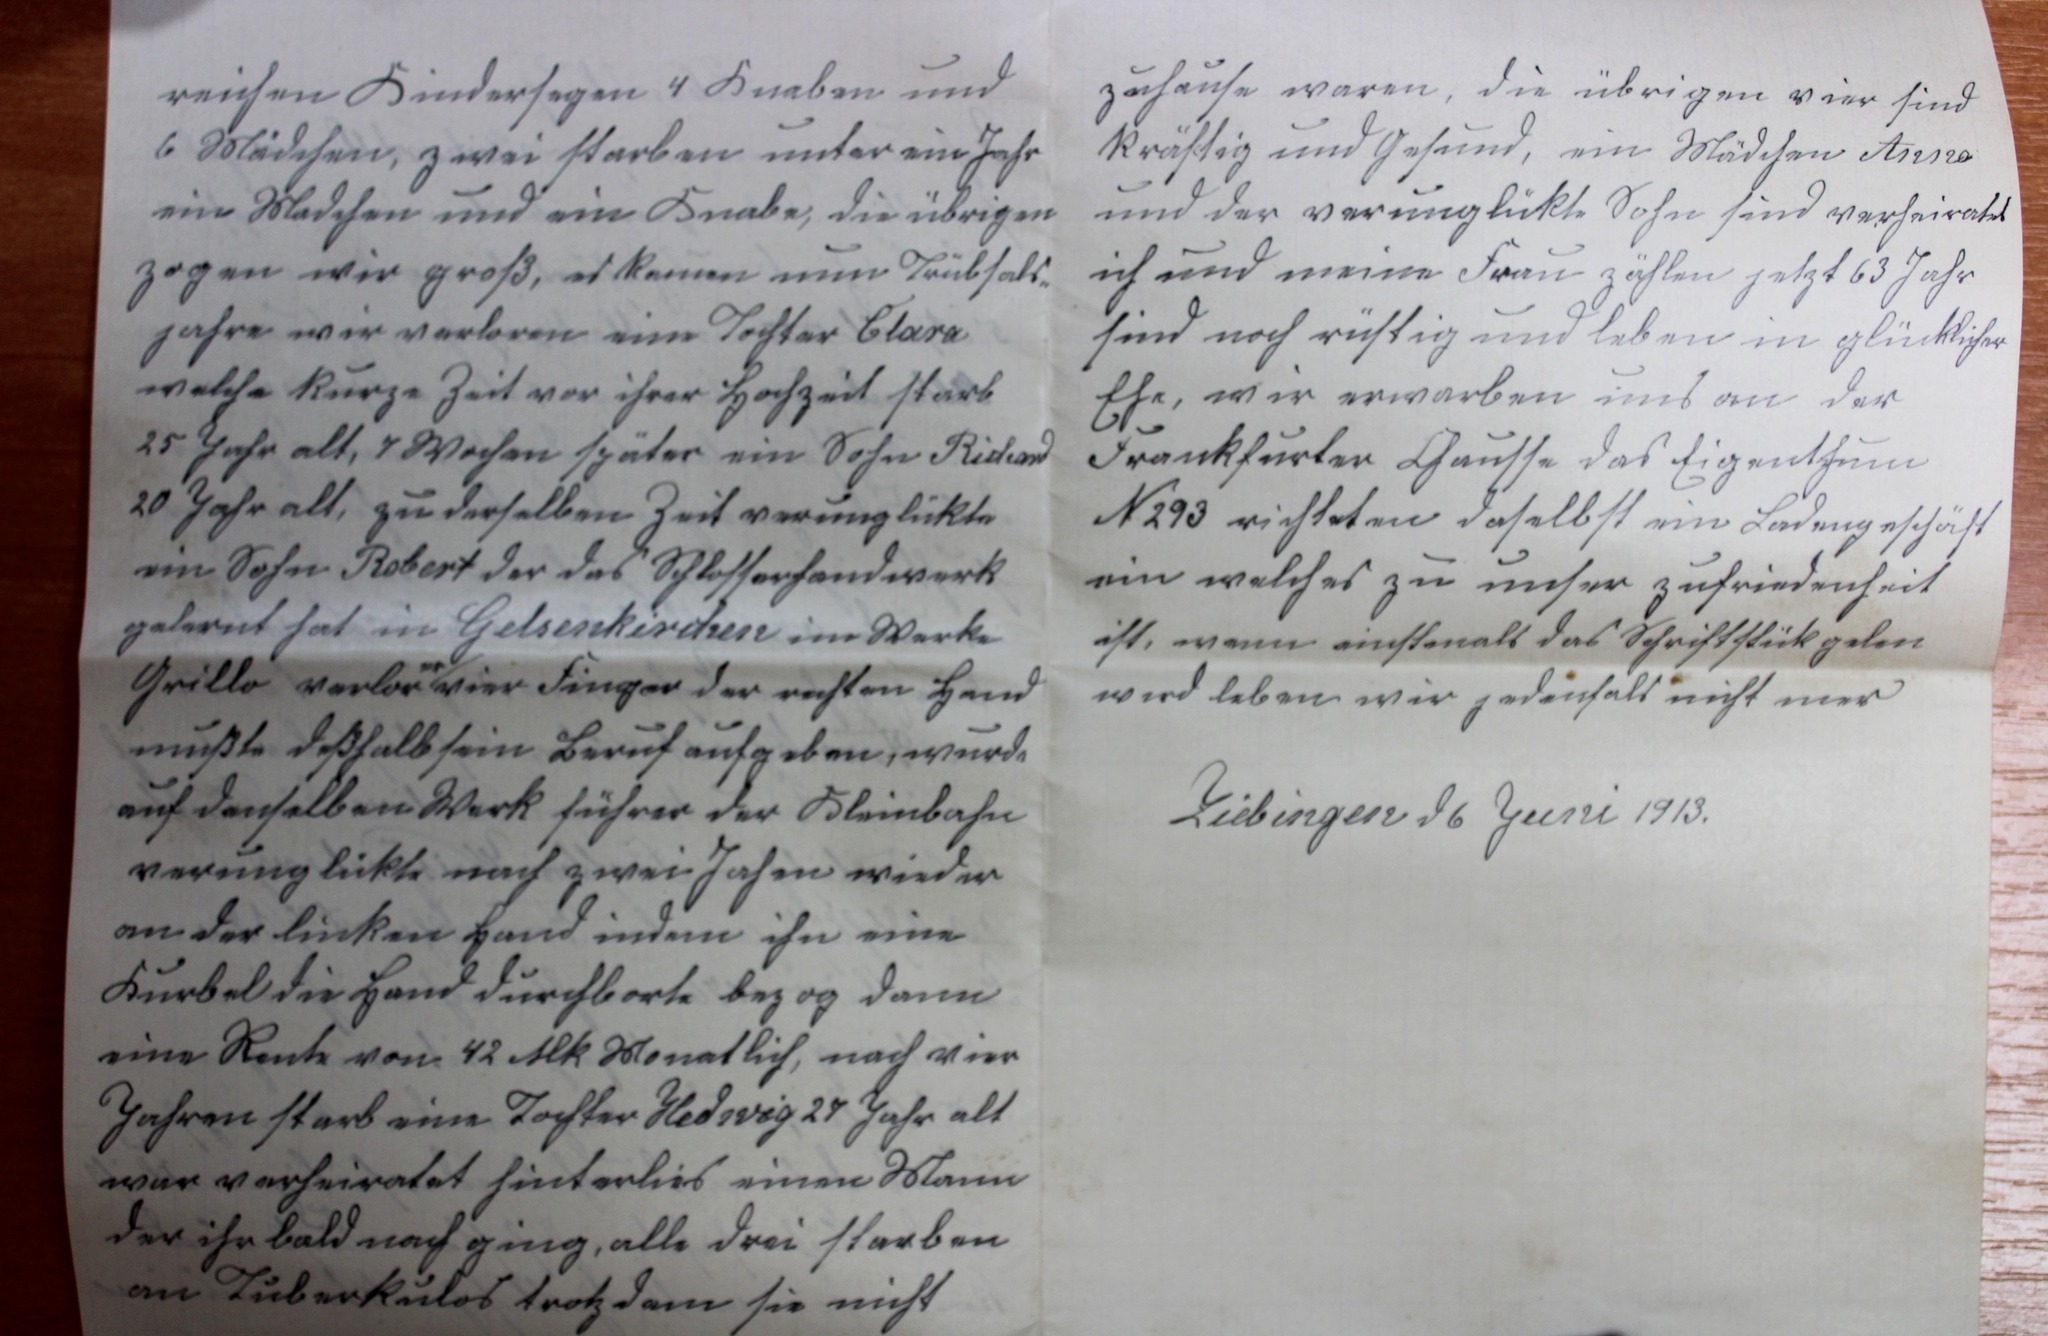 reichen Kindersegen 4 Knaben und
6 Mädchen, zwei starben unter ein Jahr
ein Madchen und ein Knabe, die übrigen
zogen wir groß, es kamen nun Trübsals-
jahre wir verloren eine Tochter Clara
welche kurze Zeit vor ihrer Hochzeit starb
25 Jahr alt, 7 Wochen später ein Sohn Richard
20 Jahr alt, zu derselben Zeit verunglükte
ein Sohn Robert der das Schlosserhandwerk
gelernt hat in Gelsenkirchen im Werke
Grillo verlor er vier Finger der rechten Hand
mußte deßhalb sein Beruf aufgeben, wurde
auf denselben Werk führer der Kleinbahn
verunglükte nach zwei Jahen wieder
an der linken Hand indem ihn eine
Kurbel die Hand durchborte bezog dann
eine Rente von 42 Mk Monatlich, nach vier
Jahren starb eine Tochter Hedwig 27 Jahr alt
war verheiratet hinterlies einen Mann
der ihr bald nach ging, alle drei starben
an Tuberkulos trotzdem sie nicht
zuhause waren, die übrigen vier sind
kräftig und Gesund, ein Mädchen Anna
und der verunglükte Sohn sind verheiratet
ich und meine Frau zählen jetzt 63 Jahr
sind noch rüstig und leben in glücklicher
Ehe, wir erwarben uns an der
Frankfurter Chausse das Eigenthum
N 293 richteten daselbst ein Ladengeschäft
ein welches zu unser zufriedenheit
ist, wenn einstemals das Schriftstük gelen
wird leben wir jedenfals nicht mer
Ziebingen d 6 Juni 1913.